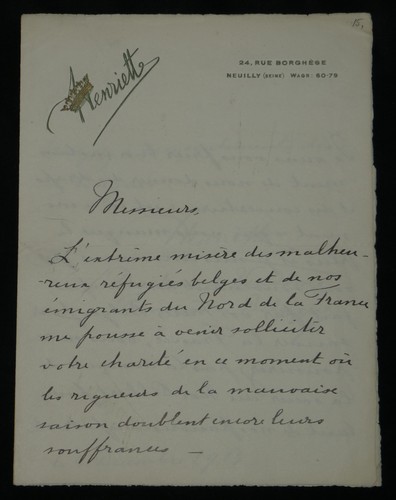 15.
Henriette
24, RUE BORGHÈSE
NEUILLY (SEINE) WAGR: 60-79
Messieurs,
L'extrême misère des malheu-
-reux réfugiés belges et de nos
émigrants du Nord de la France
me pousse à venir solliciter
votre charité en ce moment où
les rigueurs de la mauvaise
saison doublent encore leurs
souffrances —